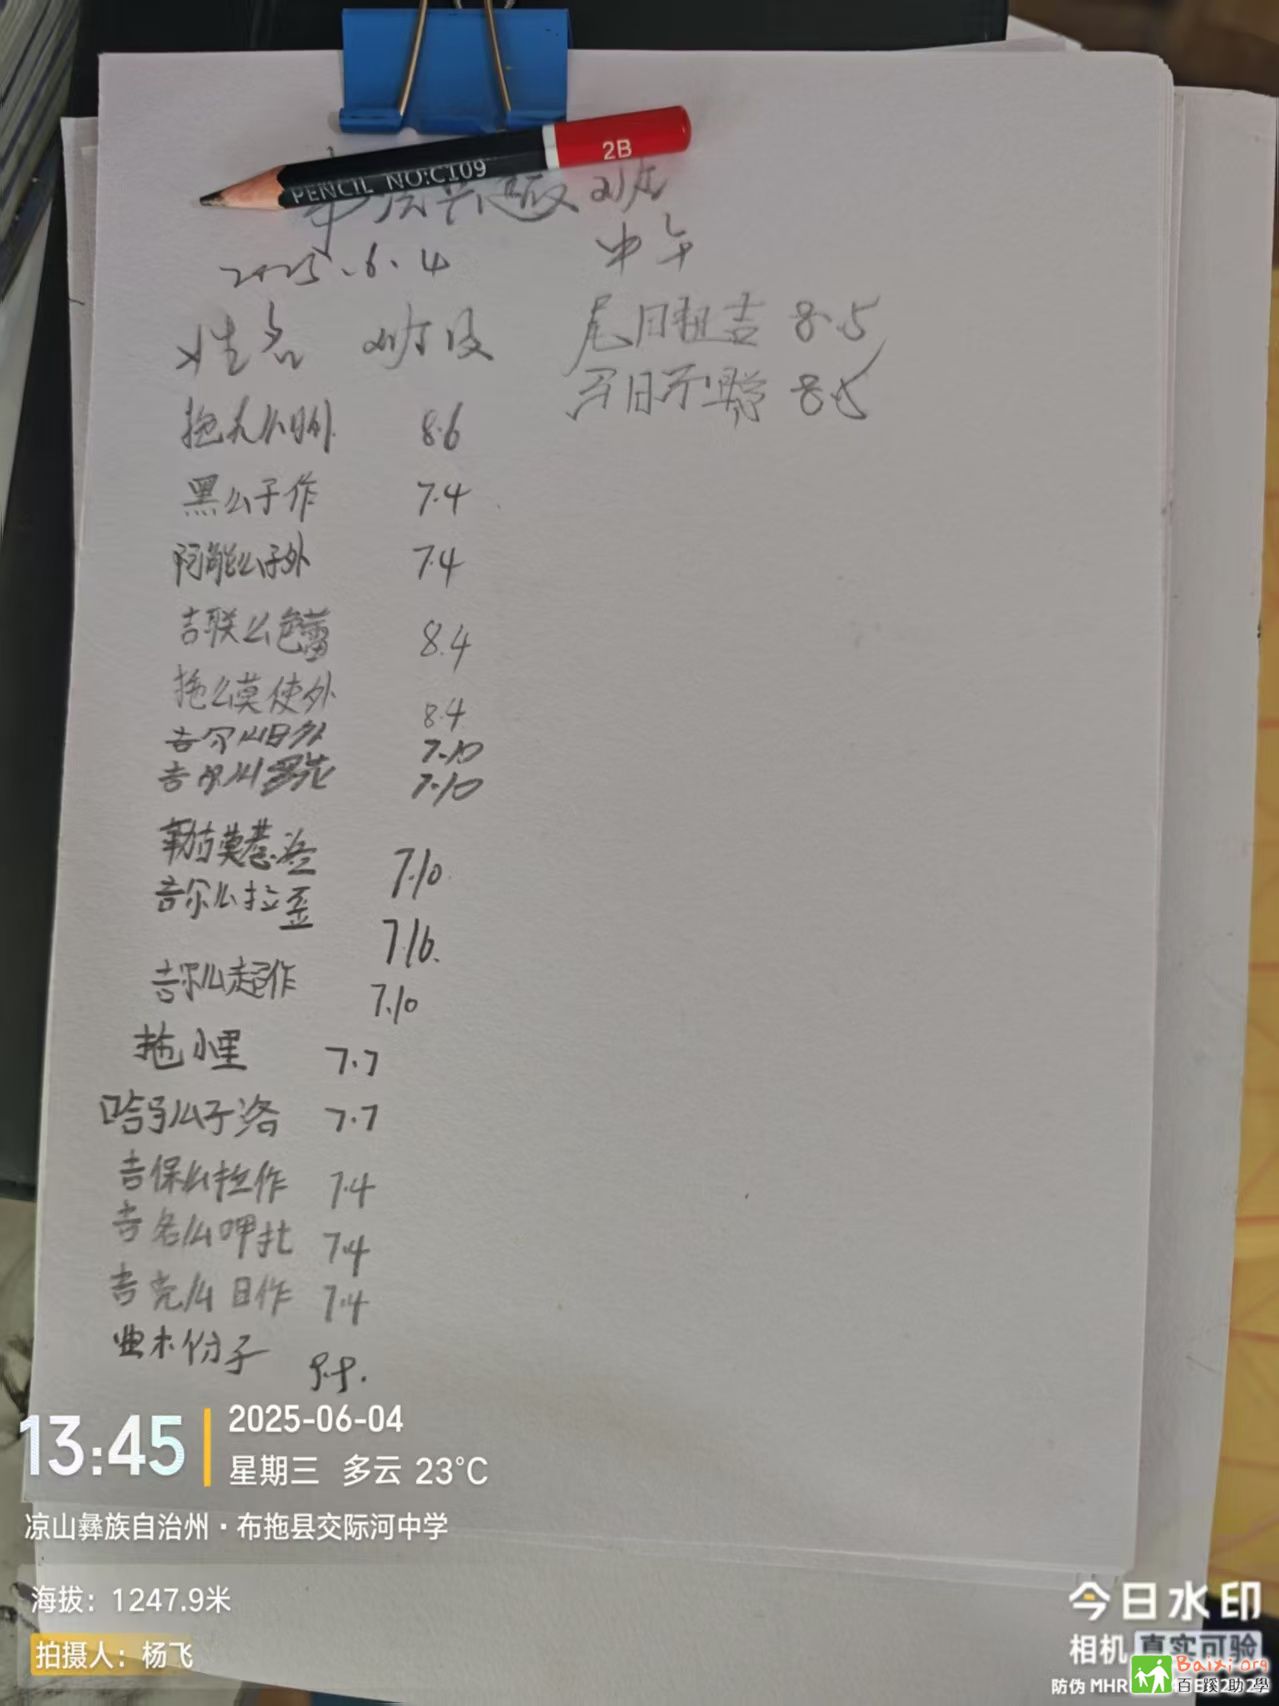 2B
PENCIL NO:C109
书法兴趣班
2025.6.4
中午
姓名 班级
尾日租吉 8.5
日 8.5
拖 么日外 8.6
黑么子作 7.4
阿能么子外 7.4
吉联么色蕾 8.4
拖么莫使外 8.4
吉尔么日 7.10
吉尔么 7.10
莫 7.10
吉尔么拉歪 7.10
吉尔么起作 7.10
拖小里 7.7
哈 么子洛 7.7
吉保么拉作 7.4
吉名么呷扎 7.4
吉克么日作 7.4
曲木份子
13:45
2025-06-04
星期三 多云 23°C
凉山彝族自治州·布拖县交际河中学
海拔：1247.9米
拍摄人：杨飞
今日水印
相机 真实可验
防伪 MHR
Baixi.org
百蹊助學